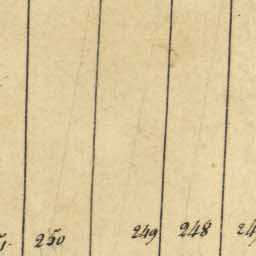 250 249 248